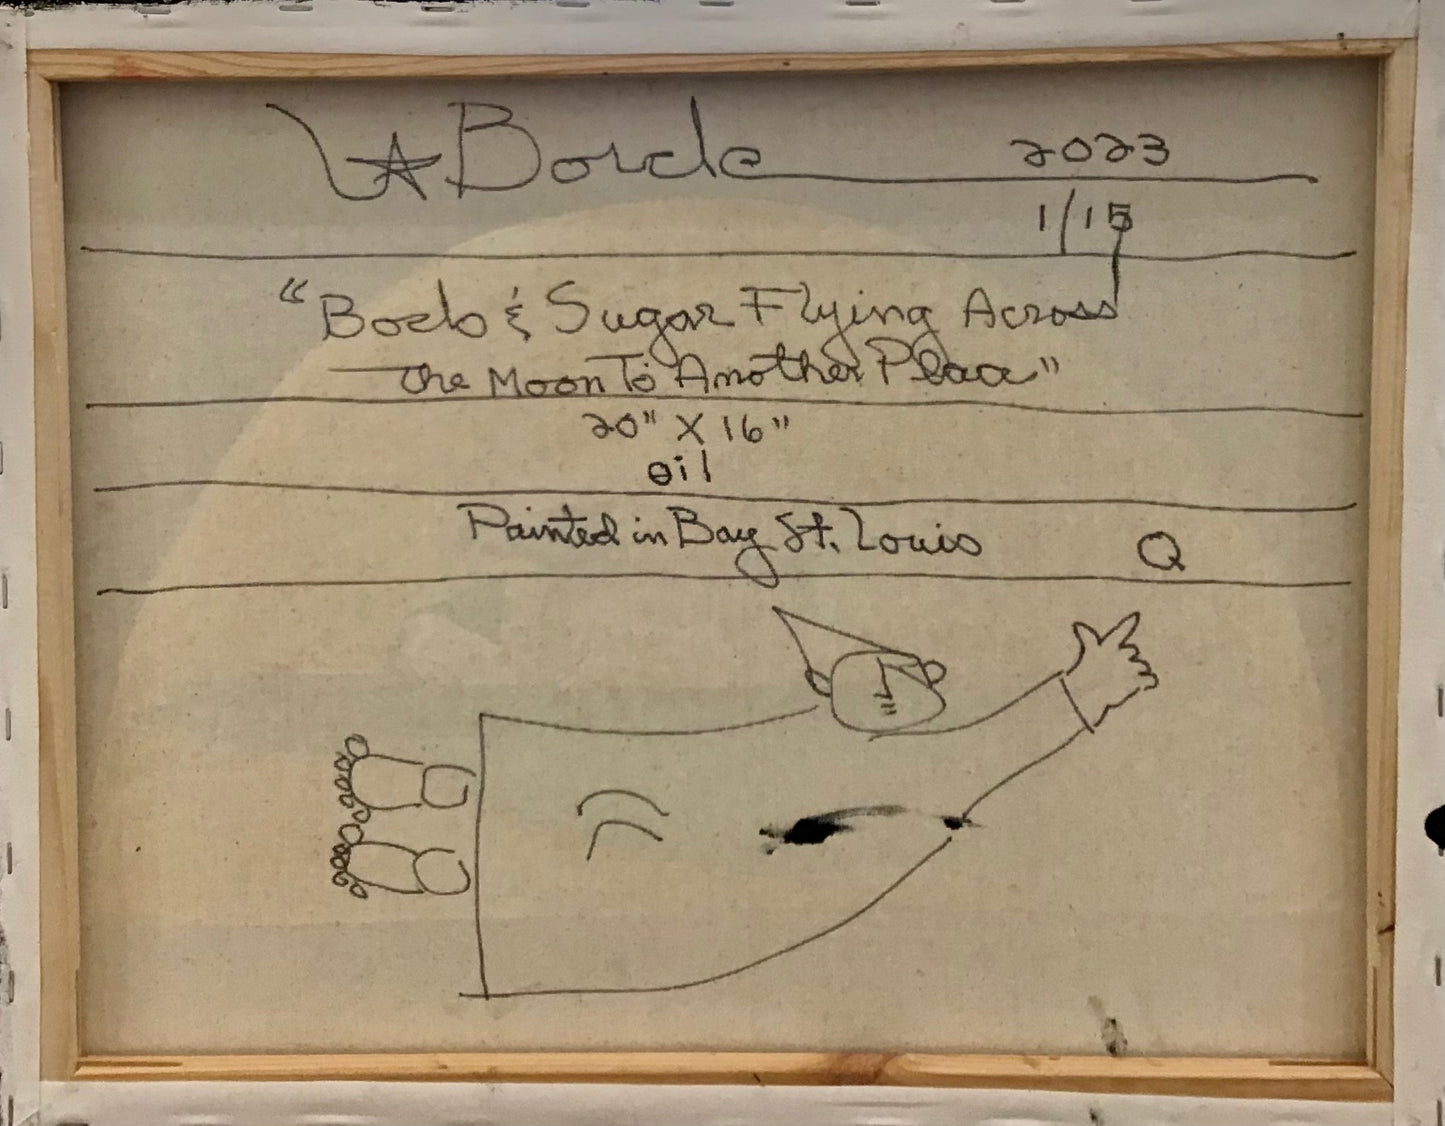 Borde 2023
1/15
"Boeb & Sugar Flying Across
The Moon To Another Place"
20" X 16"
oil
Painted in Bay St. Louis Q